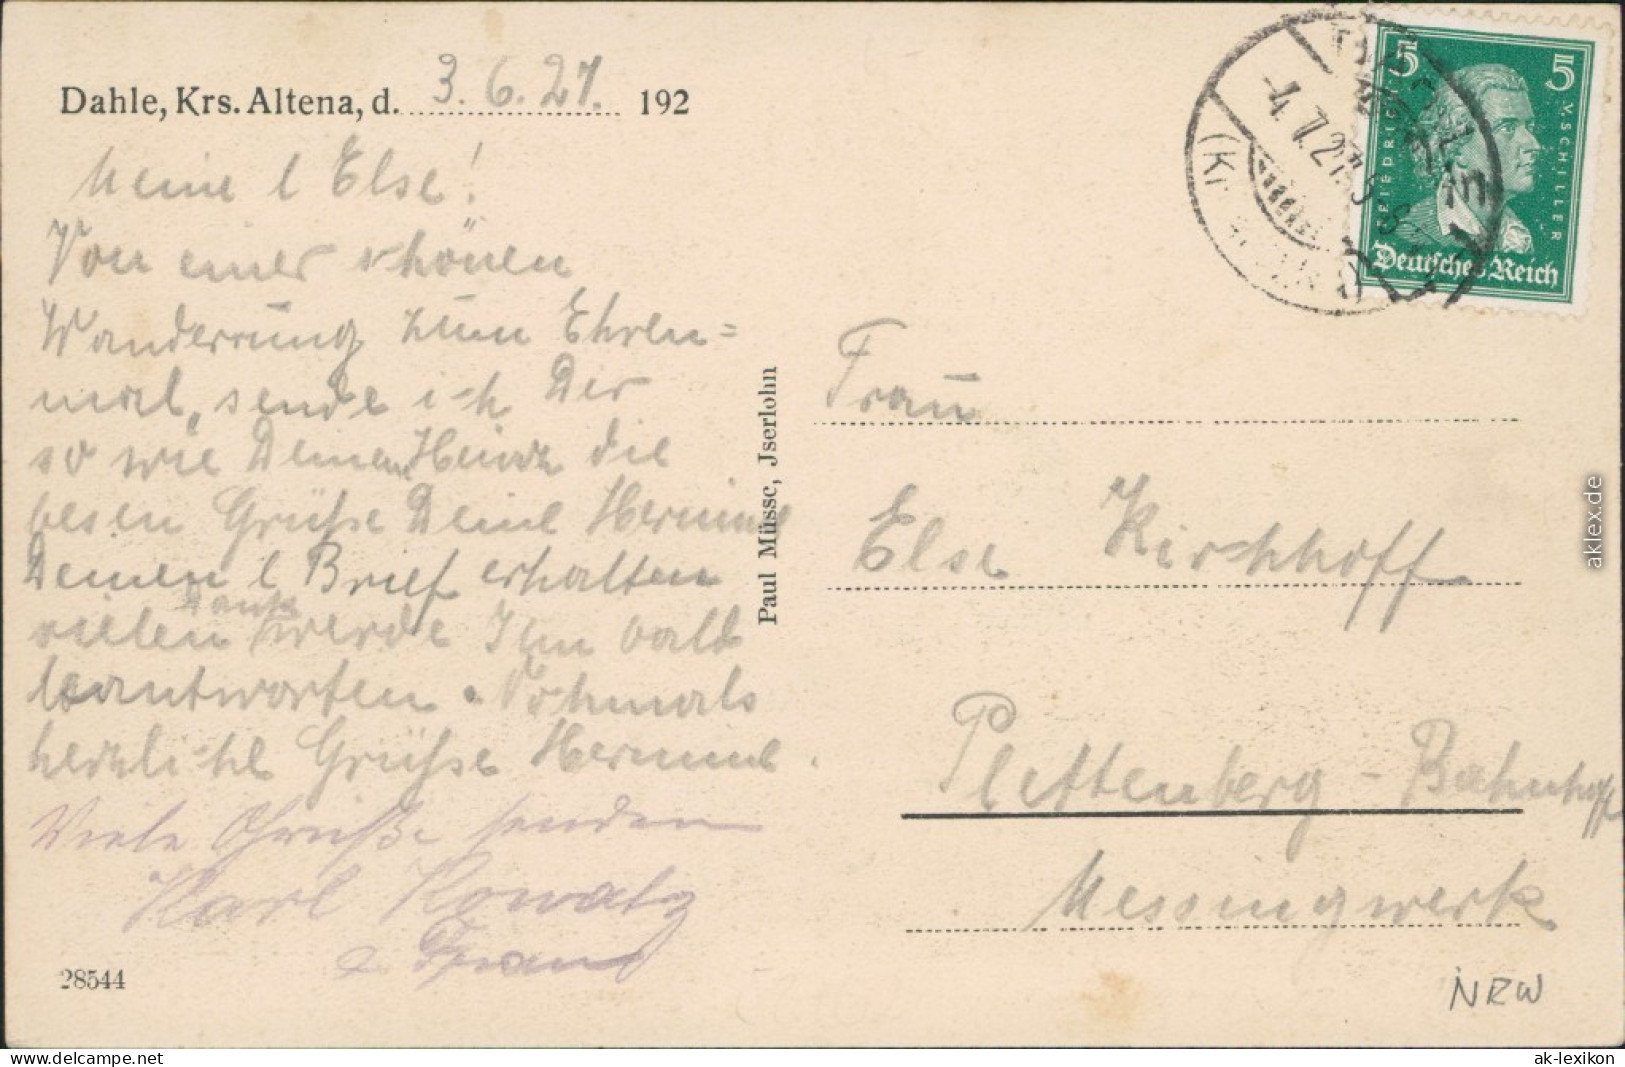 Dahle, Krs. Altena, d. 3. 6. 27. 192
Meine l Else!
Von einer schönen
Wanderung zum Ehren=
mal, sende ich Dir
so wie Deinen Heinz die
besen Grüße Deine Hermine
Deinen l Brief erhalten
vielen Dank werde Ihn bald
beantworten. Nohmals
herzliche Grüße Hermine.
Viele Grüße senden
Karl Kowatz
& Frau
28544
Paul Müsse, Jserlohn
-4.7.27.
5 5
FRIEDRICH V. SCHILLER
Deutsches Reich
Frau
Else Kirchhoff
Plettenberg - Bahnhoff
Messingwerk
NRW
aklex.de
www.delcampe.net
ak-lexikon